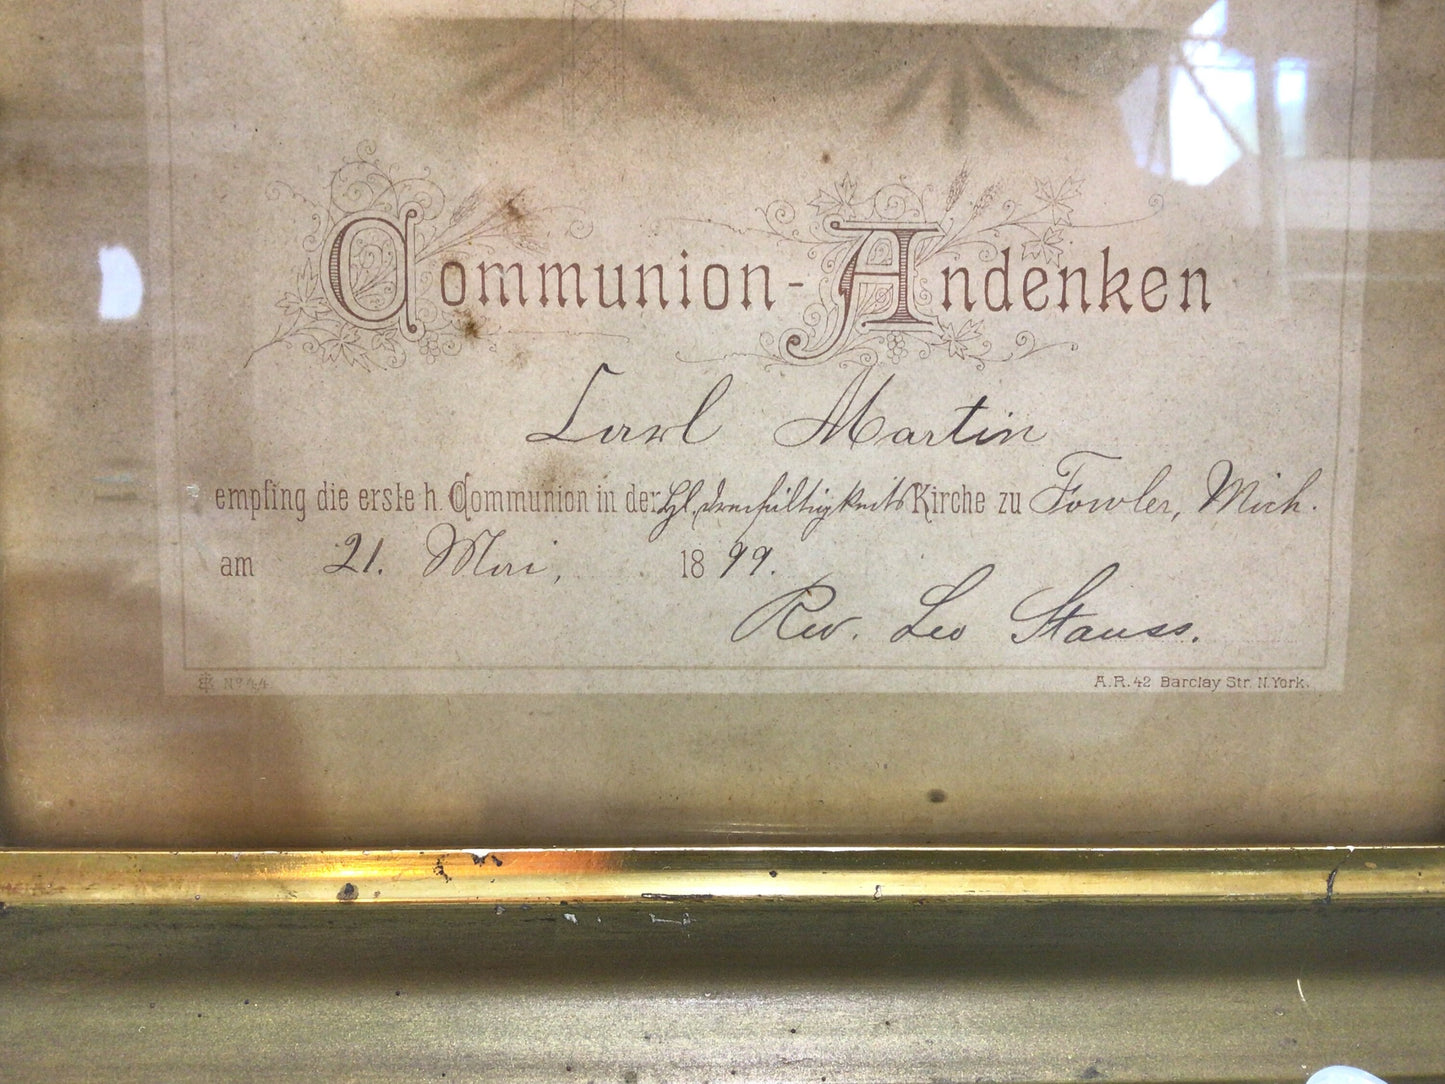 Communion-Andenken
Carl Martin
empfing die erste h. Communion in der Hl. Dreifaltigkeits Kirche zu Fowler, Mich.
am 21. Mai, 1899.
Rev. Leo Stauss.
No 44
A.R. 42 Barclay Str. N. York.